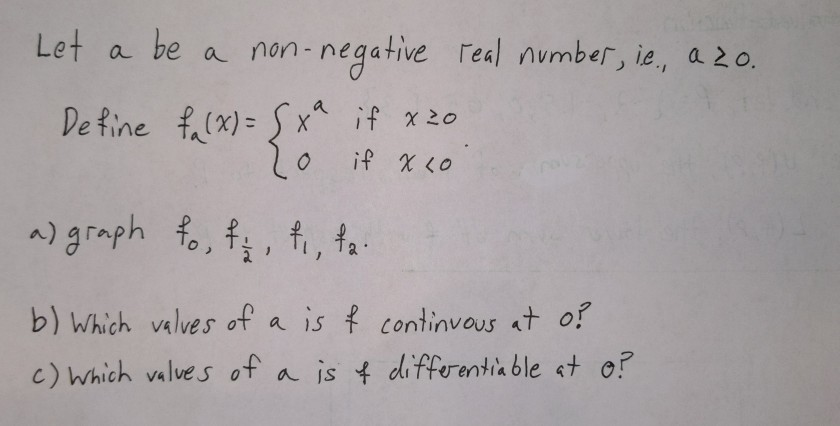 Let a be a non-negative real number, i.e., a ≥ 0.
Define fₐ(x) = { xᵃ if x ≥ 0
0 if x < 0 .
a) graph f₀, f_{1/2}, f₁, f₂.
b) Which values of a is f continuous at 0?
c) Which values of a is f differentiable at 0?